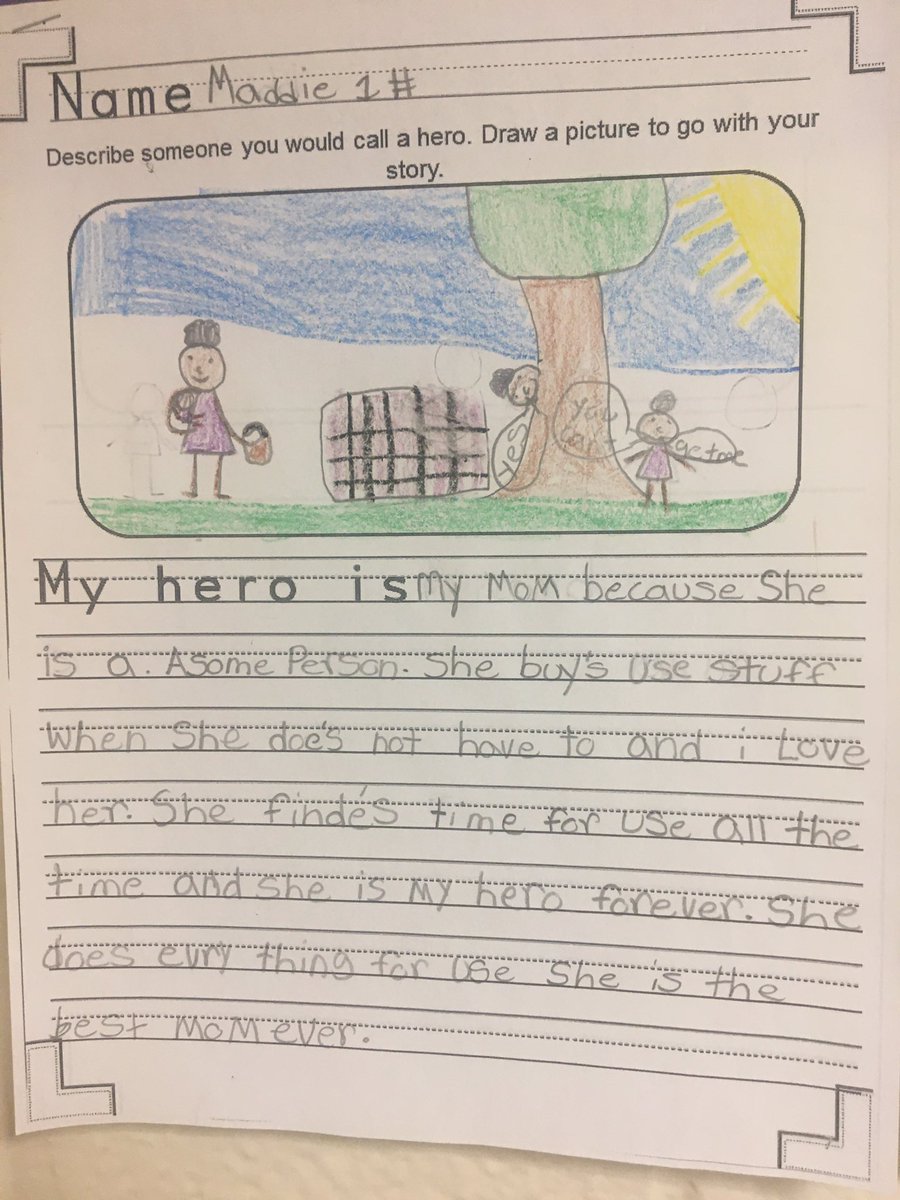 Name Maddie 1#
Describe someone you would call a hero. Draw a picture to go with your
story.
yes
you
can't
get me
My hero is my Mom because She
is a. Asome Person. She buy's use stuff
when She doe's not have to and i Love
her. She finde's time for use all the
time and she is my hero forever. She
does evry thing for use She is the
best moM ever.